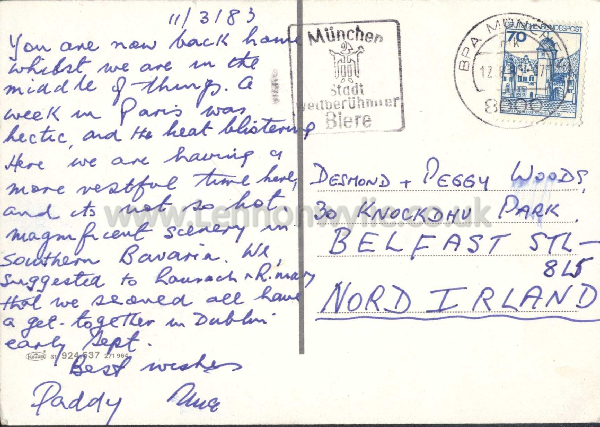 11/3/83
You are now back home
whilst we are in the
middle of things. A
week in Paris was
hectic, and the heat blistering
Here we are having a
more restful time here,
and its not so hot.
magnificent scenery in
Southern Bavaria. We
suggested to
that we should all have
a get-together in Dublin
early Sept.
Best wishes
Paddy
München
Stadt
weltberühmter
Biere
BPA MÜNCHEN
8000
70
BUNDESPOST
DESMOND + PEGGY WOODS,
30 KNOCKDHU PARK.
BELFAST
8L5
NORD IRLAND
www.Lennonwylie.co.uk
924 637